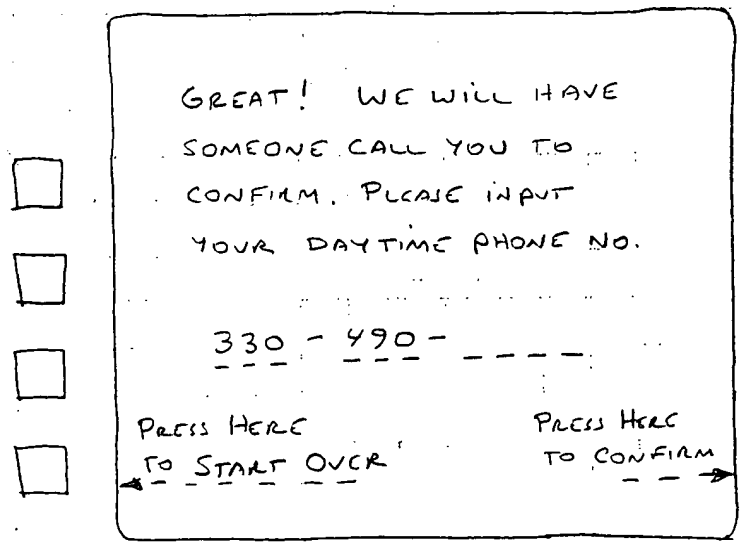 GREAT! WE WILL HAVE
SOMEONE CALL YOU TO
CONFIRM. PLEASE INPUT
YOUR DAYTIME PHONE NO.
330 - 490 - _ _ _ _
PRESS HERE
TO START OVER
PRESS HERE
TO CONFIRM